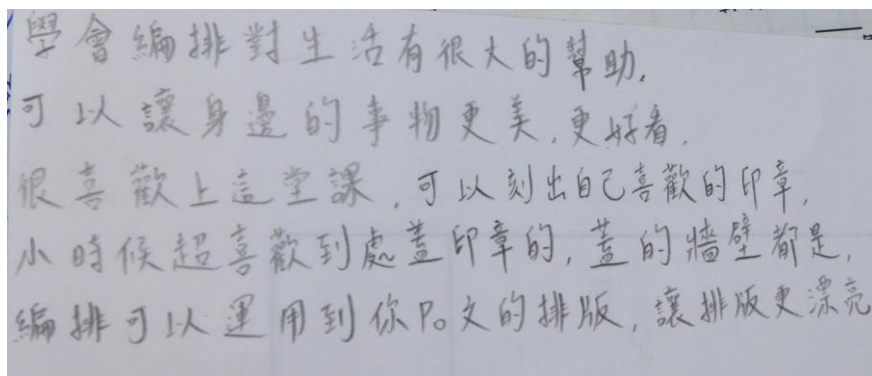 學會編排對生活有很大的幫助.
可以讓身邊的事物更美.更好看.
很喜歡上這堂課,可以刻出自己喜歡的印章,
小時候超喜歡到處蓋印章的,蓋的牆壁都是,
編排可以運用到你Po文的排版,讓排版更漂亮